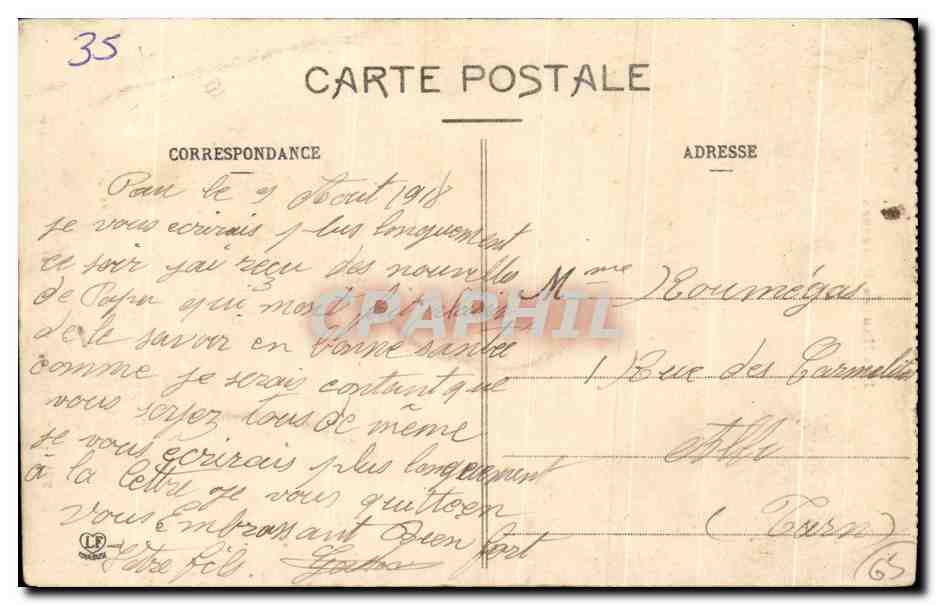 35
CARTE POSTALE
CORRESPONDANCE
ADRESSE
Pau le 9 Aout 1918
je vous ecrirais plus longuement
ce soir j'ai reçu des nouvelles
de Papa qui m'ont fait plaisir
de le savoir en bonne santée
comme je serais contant que
vous soyez tous de même
je vous écrirais plus longuement
à la lettre je vous quitte en
vous Embrassant Bien fort
Votre fils
Mme Roumégas
1 Rue des Carmelites
Albi
(Tarn)
LF
65
CPAPHIL